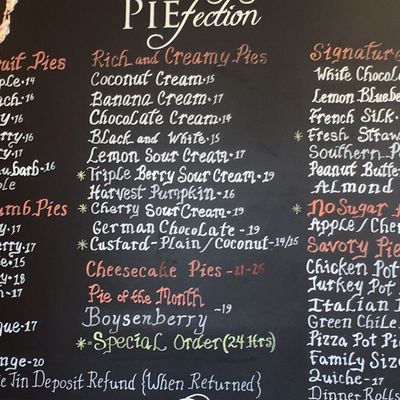 PIEfection
ruit Pies
ple · 14
ach · 16
y · 16
rry · 16
ry · 17
ubarb - 16
ple
umb Pies
y · 17
erry · 17
e · 15
y · 18
h · 17
que · 17
nge - 20
e Tin Deposit Refund {When Returned}
Rich and Creamy Pies
Coconut Cream · 15
Banana Cream · 17
Chocolate Cream · 14
Black and White · 15
Lemon Sour Cream · 17
* Triple Berry Sour Cream · 19
Harvest Pumpkin · 16
* Cherry Sour Cream · 19
German Chocolate - 19
* Custard - Plain / Coconut - 14/15
Cheesecake Pies - 21-25
Pie of the Month
Boysenberry - 19
* = Special Order (24 Hrs)
Signature
White Chocol
Lemon Bluebe
French Silk
* Fresh Straw
Southern P
Peanut Butt
Almond
* No Sugar A
Apple / Cher
Savory Pie
Chicken Pot
Turkey Pot
Italian
Green Chile
Pizza Pot Pi
Family Size
Quiche - 17
Dinner Rolls